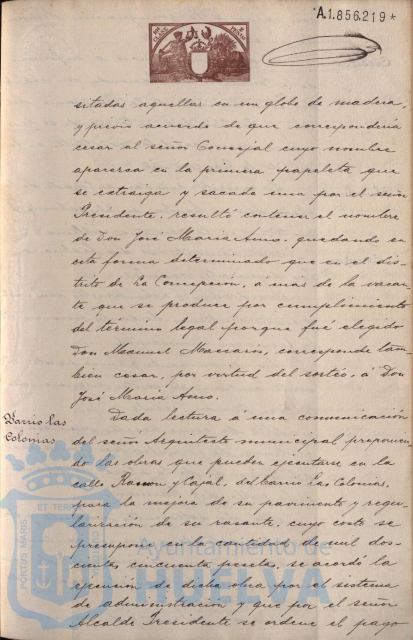 A.1.856.219*
sitadas aquellas en un globo de madera,
y previo acuerdo de que correspondería
cesar al señor Concejal cuyo nombre
aparezca en la primera papeleta que
se extraiga y sacada una por el señor
Presidente, resultó contener el nombre
de Don José María Amo, quedando en
esta forma determinado que en el dis-
trito de La Concepción, á más de la vacan-
te que se produce por cumplimiento
del término legal porque fué elegido
Don Manuel Mascarós, corresponde tam-
bien cesar, por virtud del sorteo, á Don
José María Amo.
Barrio las
Colonias
Dada lectura á una comunicación
del señor Arquitecto municipal proponien-
do las obras que pueden ejecutarse en la
calle Ramon y Cajal, del barrio Las Colonias,
para la mejora de su pavimento y regu-
larización de su rasante, cuyo coste se
presupone en la cantidad de mil dos-
cientas cincuenta pesetas, se acordó la
ejecución de dicha obra por el sistema
de administración y que por el señor
Alcalde Presidente se ordene el pago
Ayuntamiento de
HUELVA
PORTUS MARIS ET TERRAE